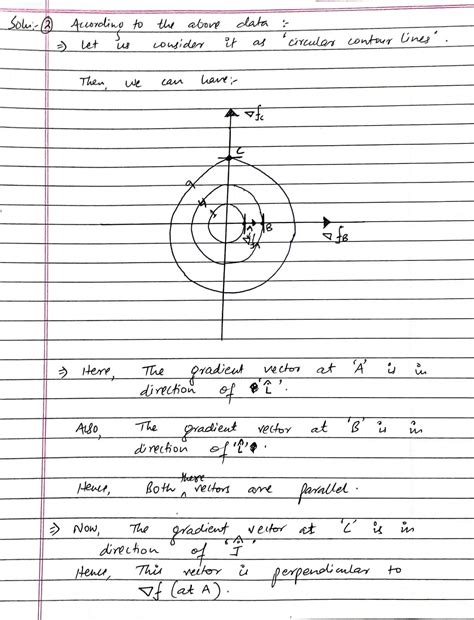 Soln:- ② According to the above data :-
⇒ let us consider it as 'circular contour lines'.
Then, we can have:-
∇fc
C
9
4
1
A
B
∇fA
∇fB
⇒ Here, The gradient vector at 'A' is in
direction of 'î'.
Also, The gradient vector at 'B' is in
direction of 'î'.
Hence, Both these vectors are parallel.
⇒ Now, The gradient vector at 'C' is in
direction of 'ĵ'
Hence, This vector is perpendicular to
∇f (at A).